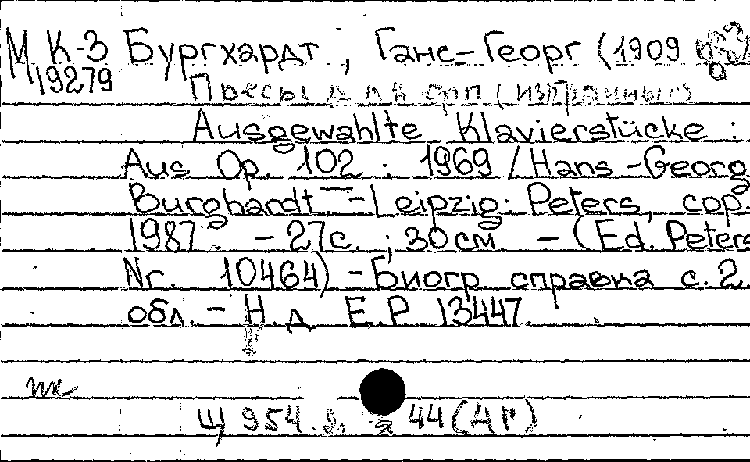 М К-3 Бургхардт, Ганс-Георг (1909
19279 Пьесы
Ausgewahlte Klavierstücke:
Aus Op. 102 : 1969 / Hans-Georg
Burghardt - Leipzig: Peters, cop.
1987. - 27 с. ; 30 см - (Ed. Peters
Nr. 10464) - Биогр. справка с. 2
обл. - Н. д. E. P. 13447.
нк
Щ 954. 44 (4 Г)